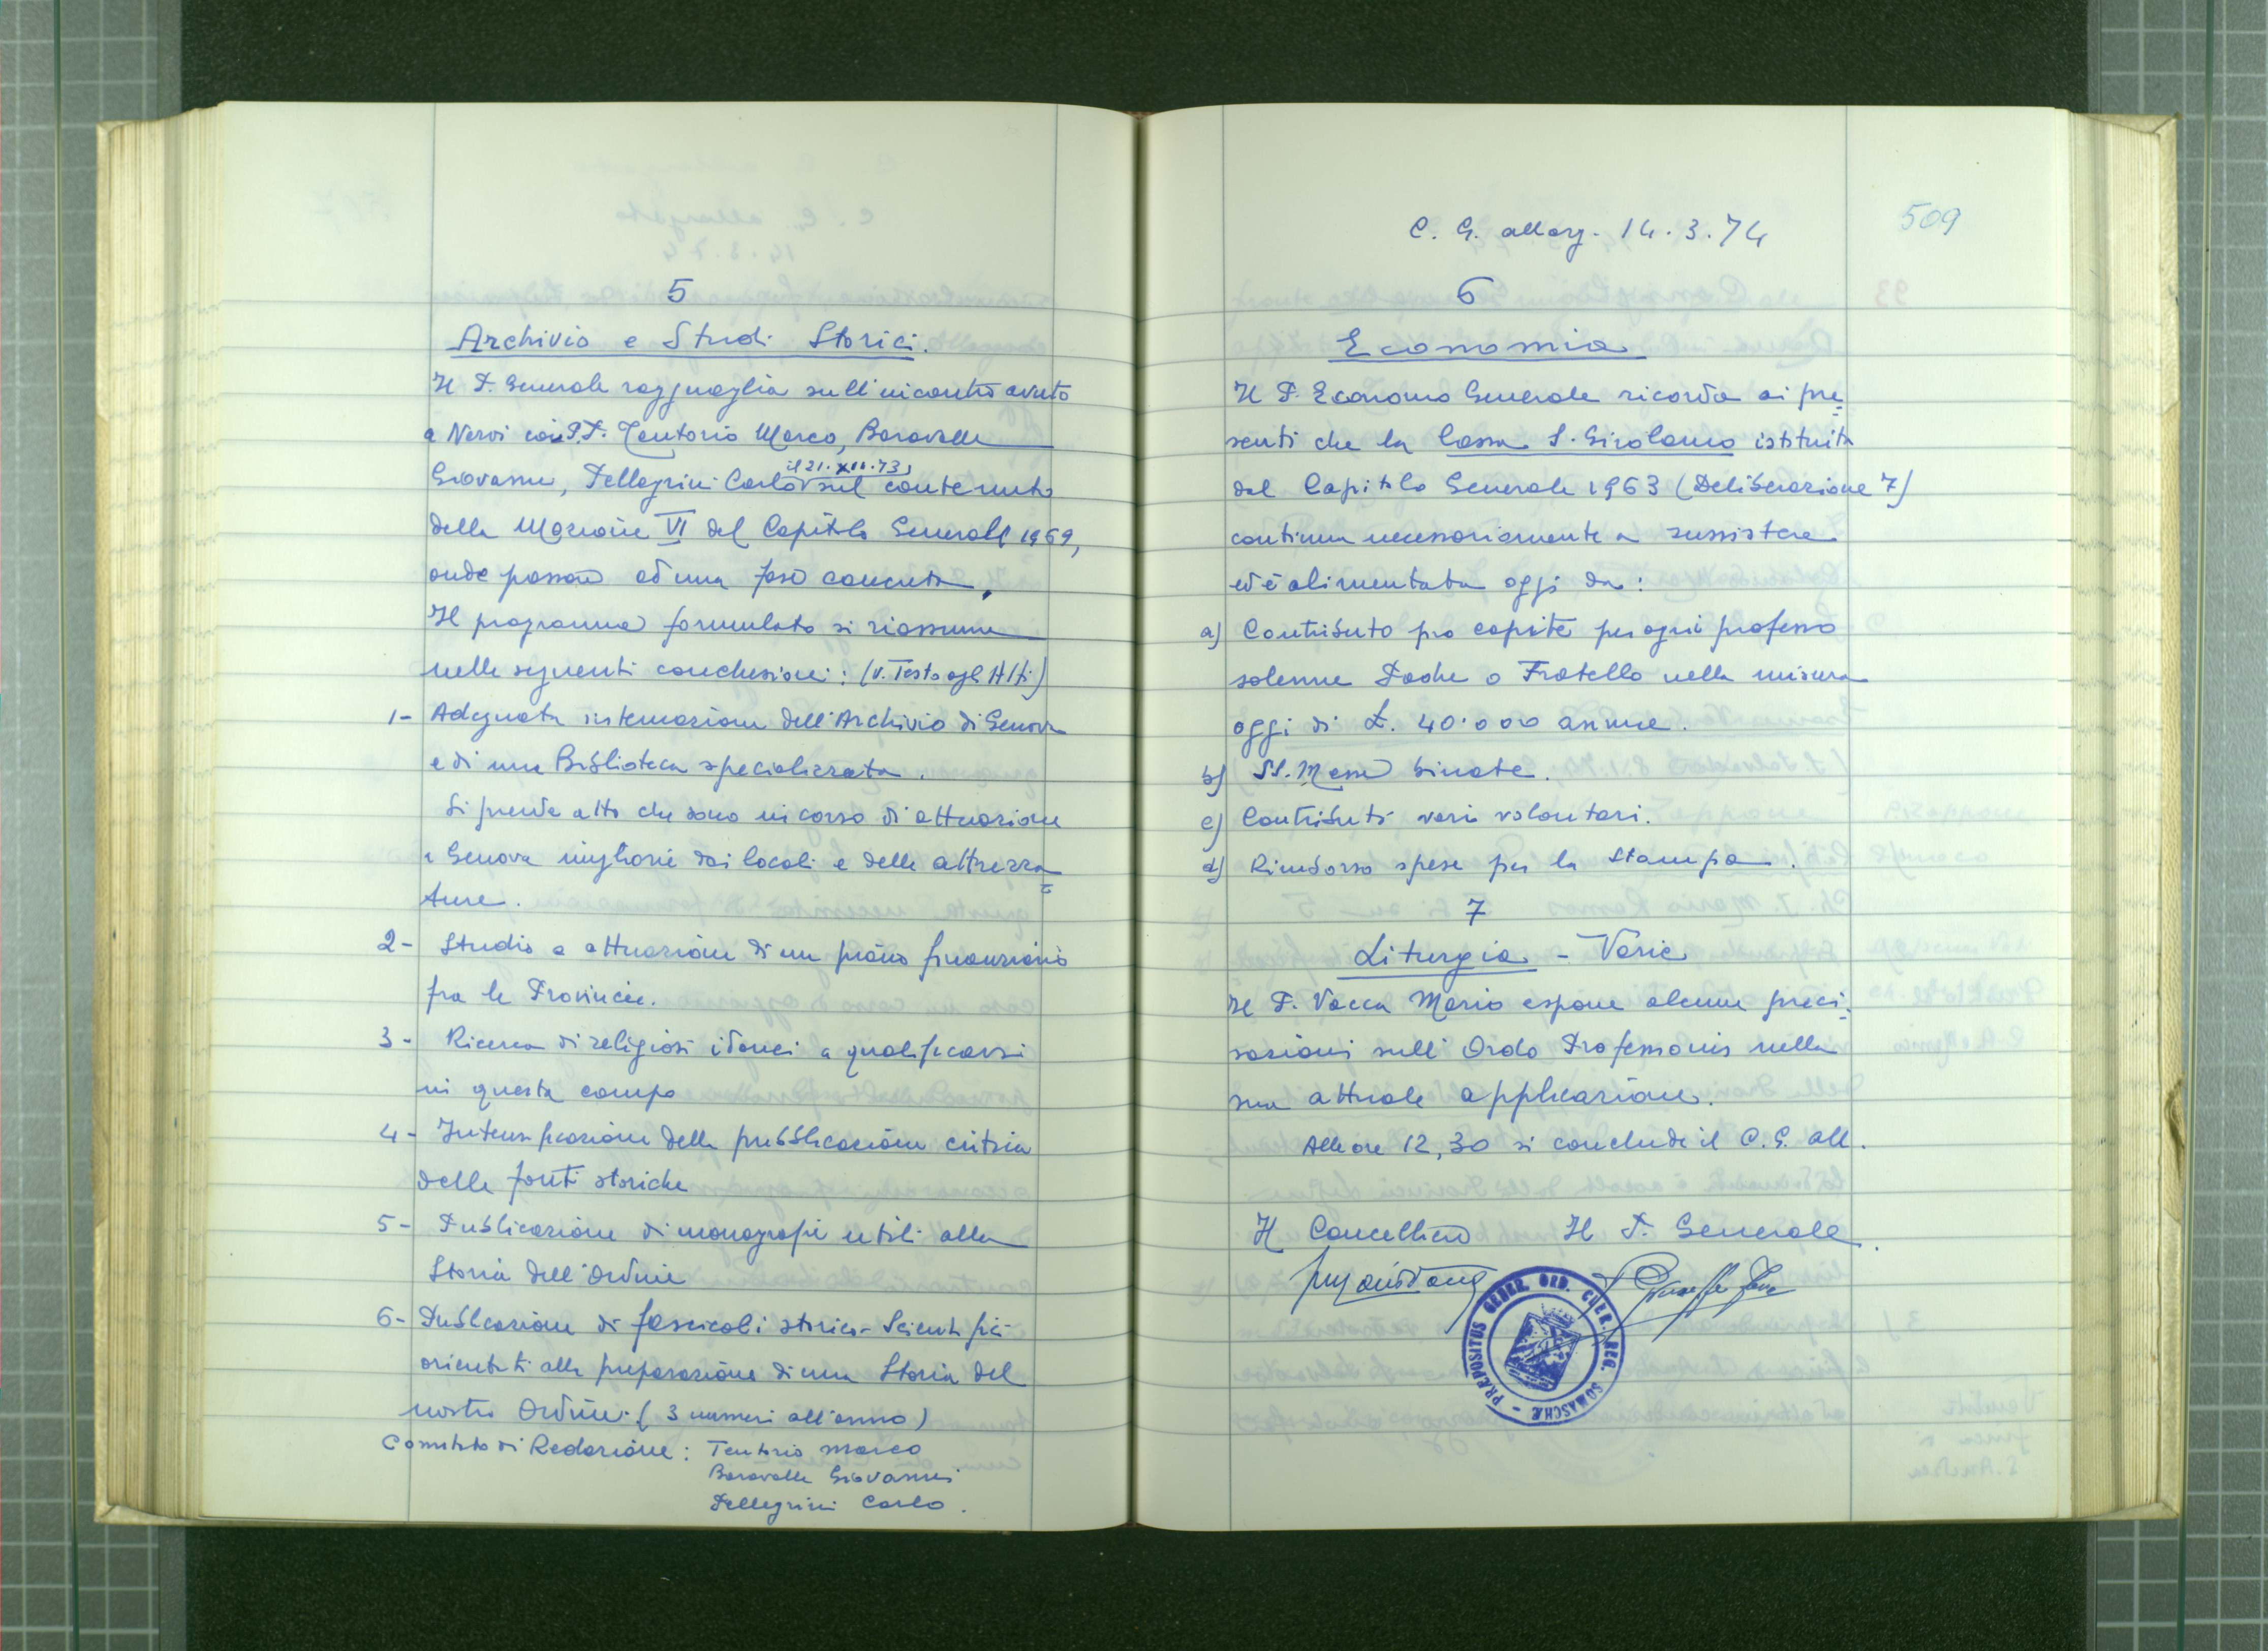 5
Archivio e Studi Storici.
Il P. Generale ragguaglia sull'incontro avuto
a Nervi coi P.P. Tentorio Marco, Baravalle
Giovanni, Pellegrini Carlo il 21.XII.73, sul contenuto
della Mozione VI del Capitolo Generale 1969,
onde passare ad una fase concreta.
Il programma formulato si riassume
nelle seguenti conclusioni: (v. Testo agli Atti)
1- Adeguata sistemazione dell'Archivio di Genova
e di una Biblioteca specializzata.
Si prende atto che sono in corso di attuazione
a Genova migliorie dei locali e delle attrezza=
ture.
2- Studio e attuazione di un piano finanziario
fra le Provincie.
3- Ricerca di religiosi idonei a qualificarsi
in questo campo
4- Intensificazione della pubblicazione critica
delle fonti storiche
5- Publicazione di monografie utili alla
Storia dell'Ordine
6- Publicazione di fascicoli storico-Scientifici
orientati alla preparazione di una Storia del
nostro Ordine. (3 numeri all'anno)
Comitato di Redazione: Tentorio Marco
Baravalle Giovanni
Pellegrini Carlo.
C. G. allarg. 14.3.74
509
6
Economia
Il P. Economo Generale ricorda ai pre=
senti che la Cassa S. Girolamo istituita
dal Capitolo Generale 1963 (Deliberazione 7)
continua necessariamente a sussistere
ed è alimentata oggi da:
a) Contributo pro capite per ogni professo
solenne Padre o Fratello nella misura
oggi di £. 40.000 annue.
b) SS. Messe binate.
c) Contributi vari volontari.
d) Rimborso spese per la Stampa.
7
Liturgia - Varie
Il P. Vacca Mario espone alcune preci=
sazioni sull'Ordo Professionis nella
sua attuale applicazione.
Alle ore 12,30 si conclude il C.G. all.
Il Cancelliere Il P. Generale.
PRÆPOSITUS GENER. ORD. CLER. REG. SOMASCHÆ